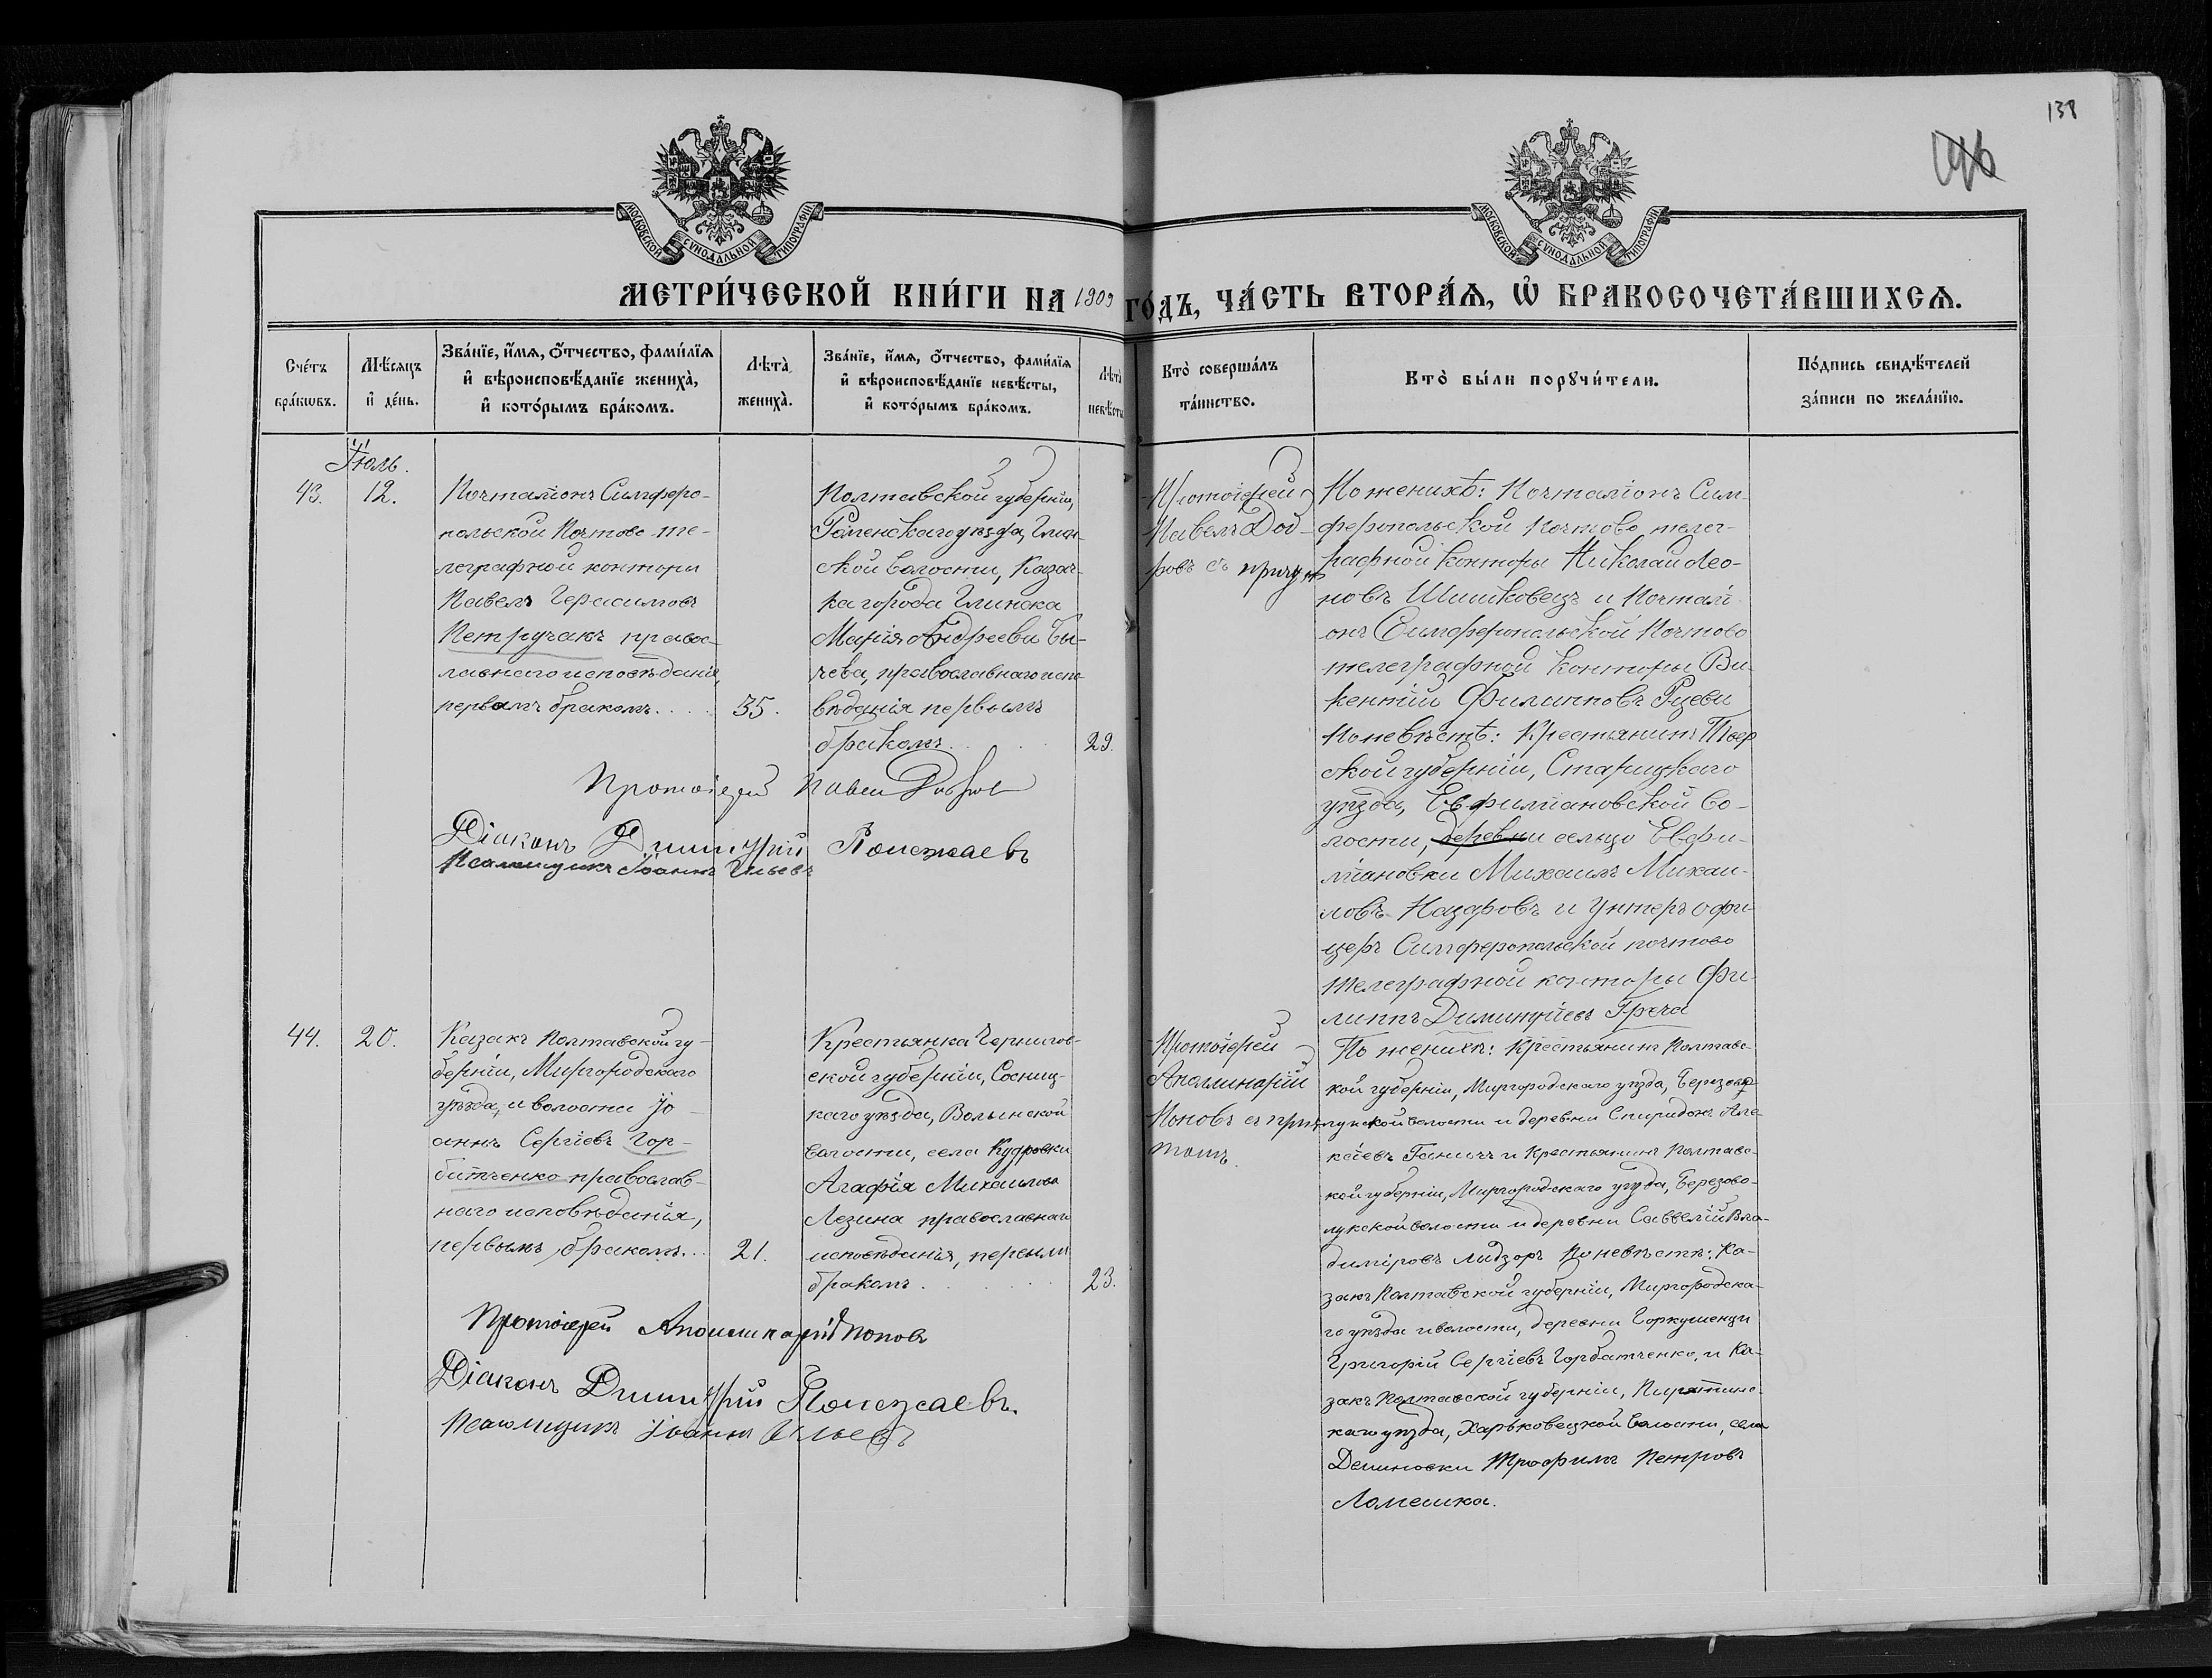 138
МОСКОВСКОЙ СУНОДАЛЬНОЙ ТИПОГРАФІИ
МОСКОВСКОЙ СУНОДАЛЬНОЙ ТИПОГРАФІИ
МЕТРИ́ЧЕСКОЙ КНИ́ГИ НА 1909 ГО́ДЪ, ЧА́СТЬ ВТОРА́Ѧ, Ѡ БРАКОСОЧЕТА́ВШИХСѦ.
Сче́тъ
бра́кѡвъ.
Мѣ́сѧцъ
и҆ де́нь.
Зва́нїе, и҆́мѧ, ѻ҆́тчество, фами́лїѧ
и҆ вѣроисповѣ́данїе жениха̀,
и҆ кото́рымъ бра́комъ.
Лѣта̀
жениха̀.
Зва́нїе, и҆́мѧ, ѻ҆́тчество, фами́лїѧ
и҆ вѣроисповѣ́данїе невѣ́сты,
и҆ кото́рымъ бра́комъ.
Лѣта̀
невѣ́сты
Кто̀ соверша́лъ
та́инство.
Кто̀ бы́ли порꙋчи́тели.
По́дпись свидѣ́телей
за́писи по жела́нїю.
Іюль.
43.
12.
Почталіонъ Симферо-
польской Почтово те-
леграфной конторы
Павелъ Герасимовъ
Петручакъ правос-
лавнаго исповѣданія,
первымъ бракомъ. . . .
35.
Полтавской губерніи,
Роменскаго уѣзда, Глин-
ской волости, Казач-
ка города Глинска
Марія Андреева Бы-
чева, православнаго испо-
вѣданія первымъ
бракомъ.
29.
Протоіерей
Павелъ Доб-
ровъ съ причтомъ
По женихѣ: Почталіонъ Сим-
феропольской Почтово телег-
рафной Конторы Николай Лео-
новъ Шишковецъ и Почталі-
онъ Симферопольской Почтово
телеграфной Конторы Ви-
кентій Филипповъ
По невѣстѣ: Крестьянинъ Твер
ской губерніи, Старицкаго
уѣзда, Ефиміановской во-
лости, деревни сельцо Евфи-
міановки Михаилъ Михаи-
ловъ Назаровъ и Унтеръ офи-
церъ Симферопольской почтово
телеграфной конторы Фи-
липпъ Димитріевъ Греча
Протоіерей Павелъ Добровъ
Діаконъ Димитрій Полежаевъ
Псаломщикъ Іоаннъ Ильевъ
44.
20.
Казакъ Полтавской гу-
берніи, Миргородскаго
уѣзда, и волости Іо-
аннъ Сергіевъ Гор-
батченко православ-
наго исповѣданія,
первымъ бракомъ. . .
21.
Крестьянка Чернигов-
ской губерніи, Сосниц-
каго уѣзда, Волынской
волости, села Кудровки
Агафія Михаилова
Лезина православнаго
исповѣданія, первымъ
бракомъ.
23.
Протоіерей
Аполинарій
Поповъ съ прич-
томъ.
По женихѣ: Крестьянинъ Полтавс-
кой губерніи, Миргородскаго уѣзда, Березово-
лукской волости и деревни Спиридонъ Але-
ксѣевъ Ганичъ и Крестьянинъ Полтавс-
кой губерніи, Миргородскаго уѣзда, Березово-
лукской волости и деревни Саввелій Вла-
диміровъ Лидзаръ По невѣстѣ: Ка-
закъ Полтавской губерніи, Миргородска-
го уѣзда и волости, деревни Горкушенци
Григорій Сергіевъ Горбатченко, и Ка-
закъ Полтавской губерніи, Пирятинс-
каго уѣзда, Харьковецкой волости, села
Деминовки Трофимъ Петровъ
Ломешка.
Протоіерей Аполинарій Поповъ
Діаконъ Димитрій Полежаевъ.
Псаломщикъ Іоаннъ Ильевъ